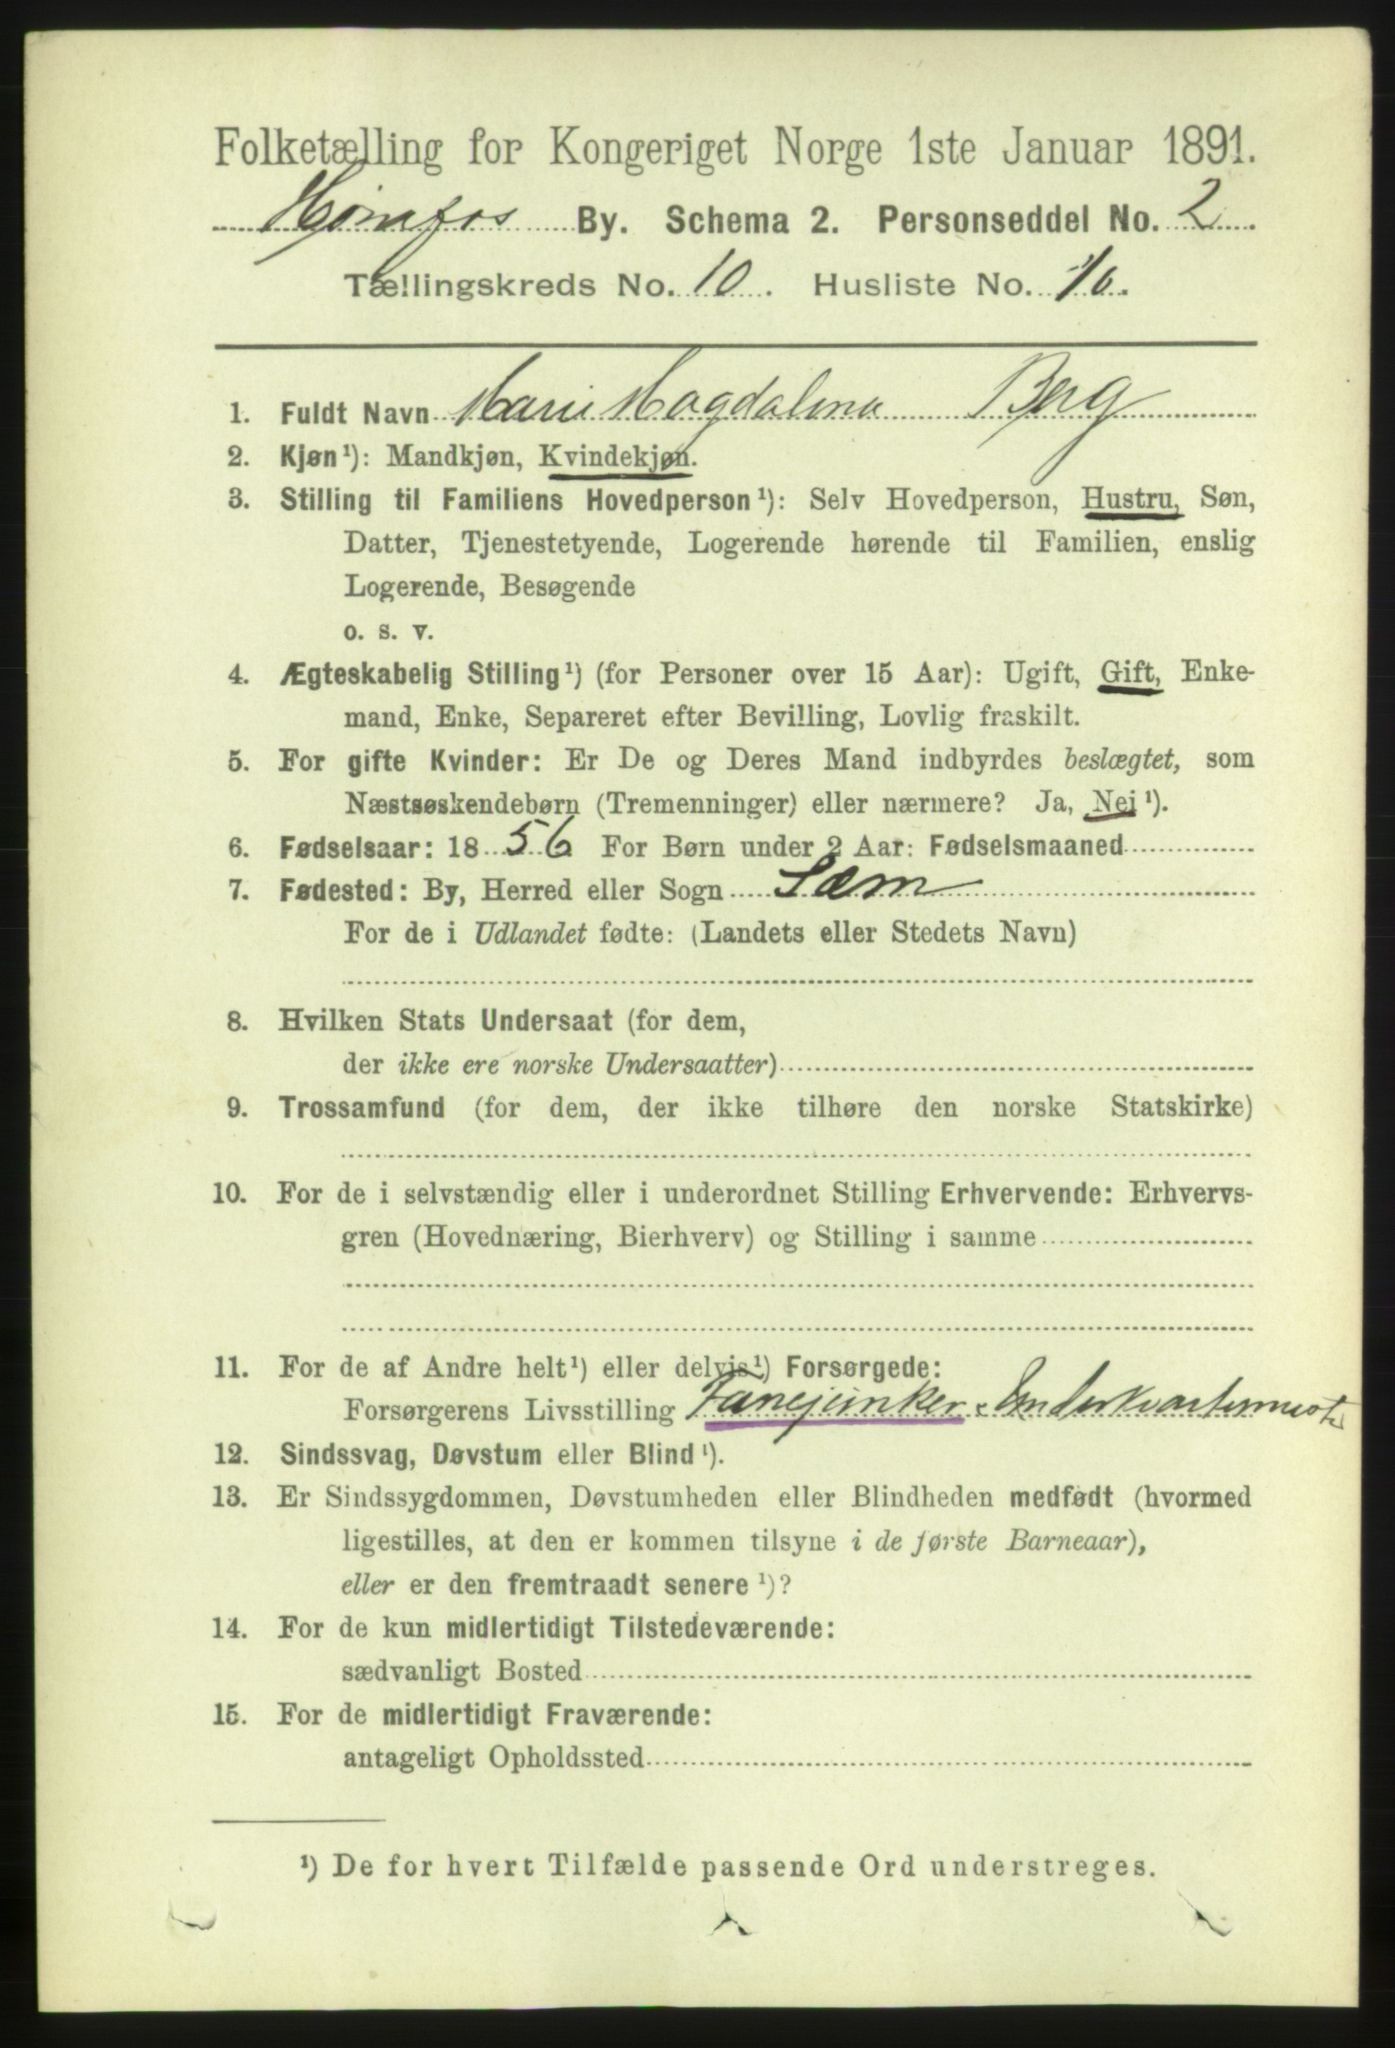 Folketælling for Kongeriget Norge 1ste Januar 1891.
Hønefos By. Schema 2. Personseddel No. 2.
Tællingskreds No. 10. Husliste No. 10.
1. Fuldt Navn Marie Magdalena Berg
2. Kjøn¹): Mandkjøn, Kvindekjøn.
3. Stilling til Familiens Hovedperson¹): Selv Hovedperson, Hustru, Søn,
Datter, Tjenestetyende, Logerende hørende til Familien, enslig
Logerende, Besøgende
o. s. v.
4. Ægteskabelig Stilling¹) (for Personer over 15 Aar): Ugift, Gift, Enke-
mand, Enke, Separeret efter Bevilling, Lovlig fraskilt.
5. For gifte Kvinder: Er De og Deres Mand indbyrdes beslægtet, som
Næstsøskendebørn (Tremenninger) eller nærmere? Ja, Nej¹).
6. Fødselsaar: 1856 For Børn under 2 Aar: Fødselsmaaned
7. Fødested: By, Herred eller Sogn Sæm
For de i Udlandet fødte: (Landets eller Stedets Navn)
8. Hvilken Stats Undersaat (for dem,
der ikke ere norske Undersaatter)
9. Trossamfund (for dem, der ikke tilhøre den norske Statskirke)
10. For de i selvstændig eller i underordnet Stilling Erhvervende: Erhvervs-
gren (Hovednæring, Bierhverv) og Stilling i samme
11. For de af Andre helt¹) eller delvis¹) Forsørgede:
Forsørgerens Livsstilling Fanejunker & Underkvartermest
12. Sindssvag, Døvstum eller Blind¹).
13. Er Sindssygdommen, Døvstumheden eller Blindheden medfødt (hvormed
ligestilles, at den er kommen tilsyne i de første Barneaar),
eller er den fremtraadt senere¹)?
14. For de kun midlertidigt Tilstedeværende:
sædvanligt Bosted
15. For de midlertidigt Fraværende:
antageligt Opholdssted
¹) De for hvert Tilfælde passende Ord understreges.